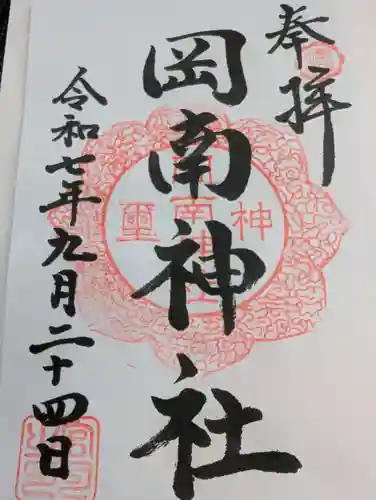 奉拝
岡南神社
令和七年九月二十四日